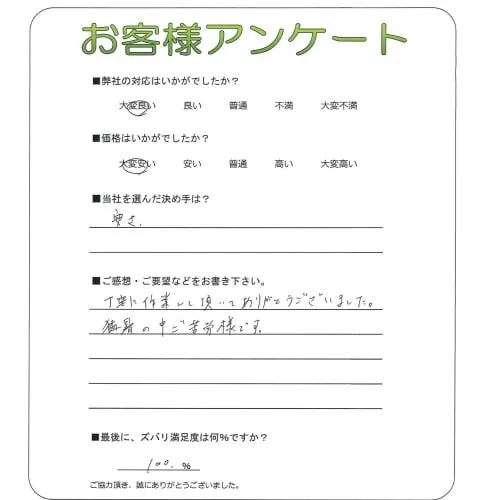 お客様アンケート
■弊社の対応はいかがでしたか?
大変良い 良い 普通 不満 大変不満
■価格はいかがでしたか?
大変安い 安い 普通 高い 大変高い
■当社を選んだ決め手は?
安さ.
■ご感想・ご要望などをお書き下さい。
丁寧に作業して頂いてありがとうございました。
猛暑の中ご苦労様です.
■最後に、ズバリ満足度は何%ですか?
100. %
ご協力頂き、誠にありがとうございました。